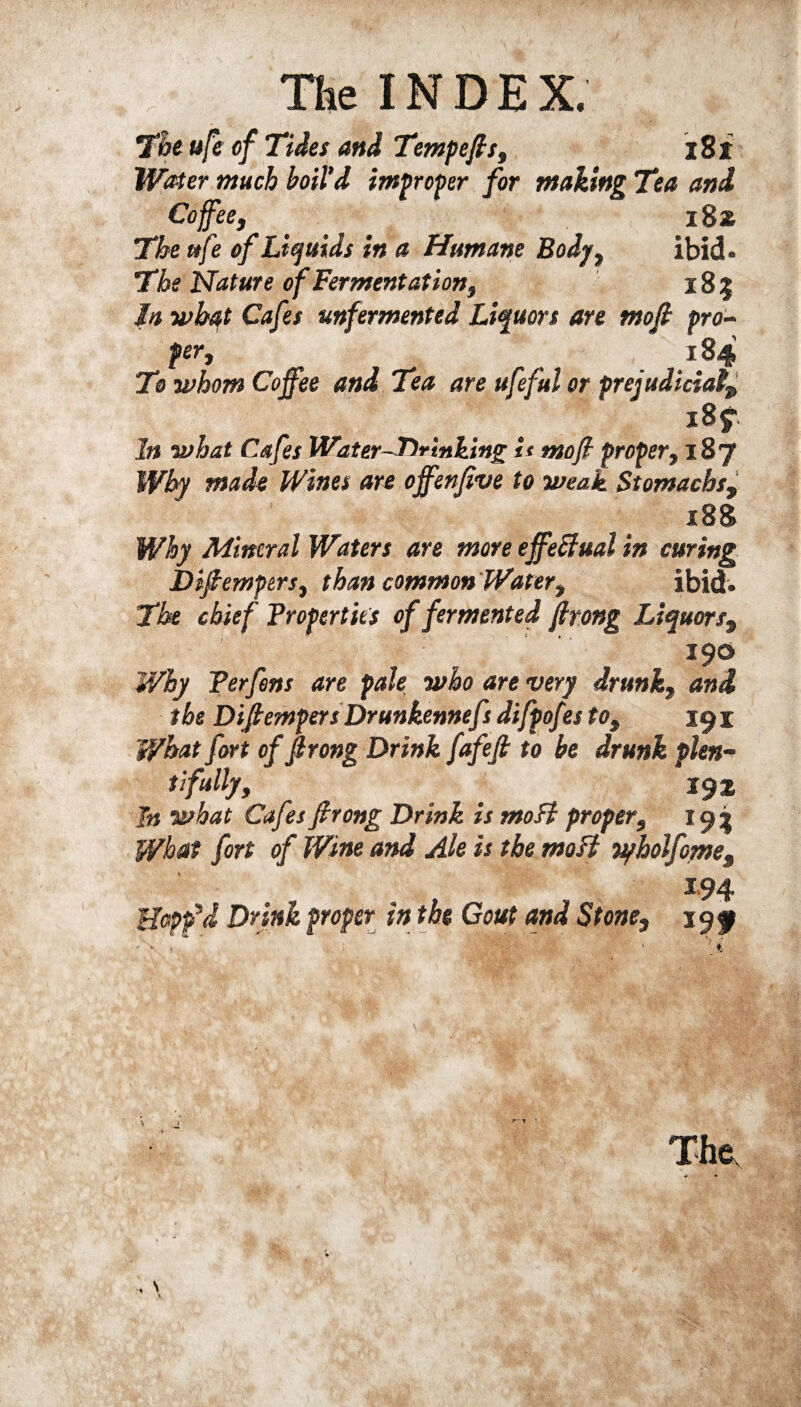 The INDEX.
The uſe of Tides and Tempeſts, 181
Water much boil'd improper for making Tea and
Coffee, 182
The uſe of Liquids in a Humane Body, ibid.
The Nature of Fermentation, 183
In what Caſes unfermented Liquors are moſt pro-
per, 184
To whom Coffee and Tea are uſeful or prejudicial,
185
In what Caſes Water-Drinking is moſt proper, 187
Why made Wines are offenſive to weak Stomachs,
188
Why Mineral Waters are more effectual in curing
Diſtempers, than common Water, ibid.
The chief Properties of fermented ſtrong Liquors,
190
Why Perſons are pale who are very drunk, and
the Diſtempers Drunkenneſs diſpoſes to, 191
What ſort of ſtrong Drink ſafeſt to be drunk plen-
tifully, 192
In what Caſes ſtrong Drink is moſt proper, 193
What ſort of Wine and Ale is the moſt wholſome,
194
Hopp'd Drink proper in the Gout and Stone, 195
The